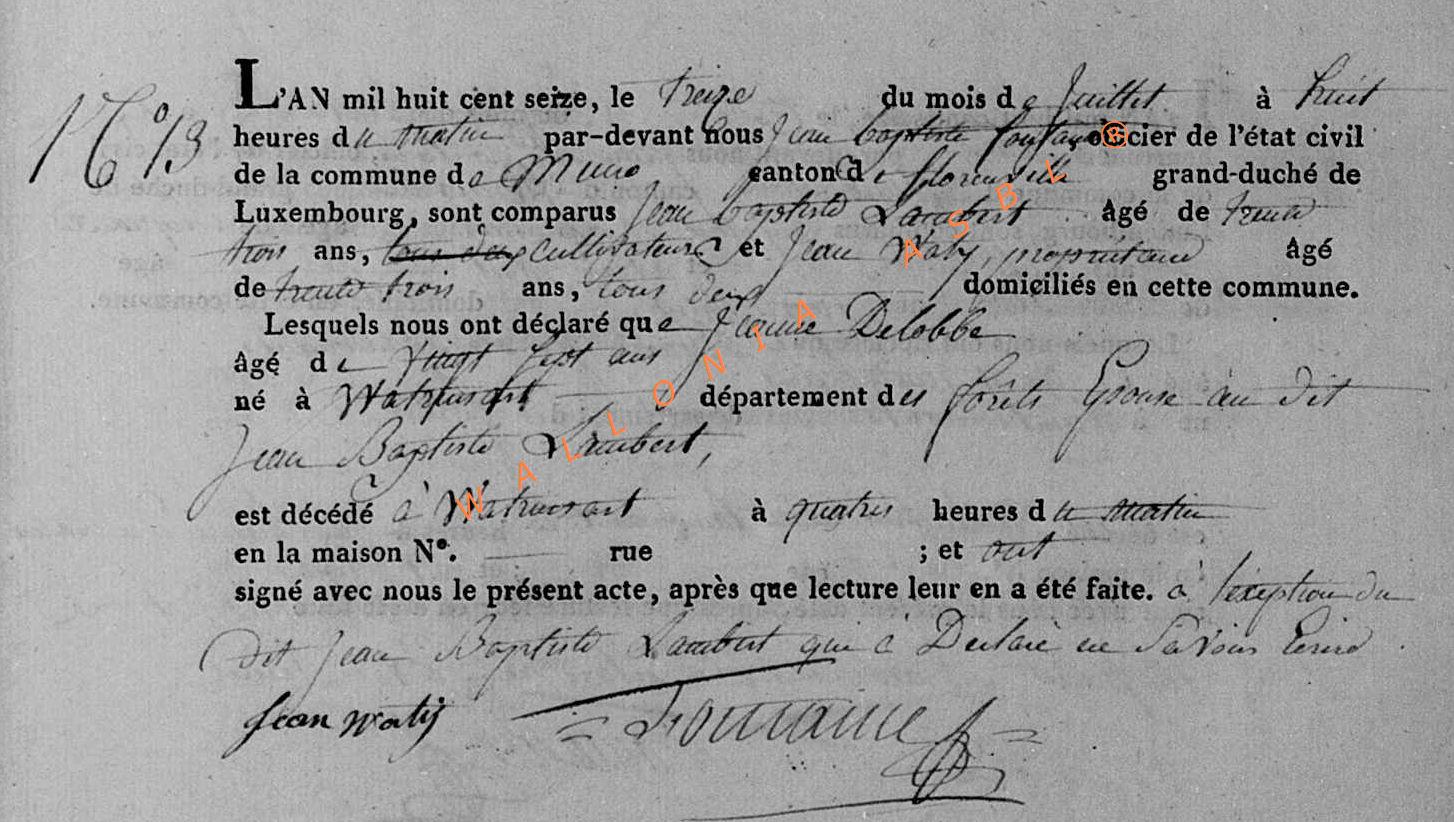 N° 13
L'AN mil huit cent seize, le treize du mois de juillet à huit
heures du matin par-devant nous Jean baptiste fontaine officier de l'état civil
de la commune de Muno canton de florenville grand-duché de
Luxembourg, sont comparus Jean baptiste Lambert âgé de trente
trois ans, tous deux cultivateur et Jean Waty, propriétaire âgé
de trente trois ans, tous deux domiciliés en cette commune.
Lesquels nous ont déclaré que Jeanne Delobbe
âgé de vingt sept ans
né à Watrinsart département des forêts Epouse au dit
Jean Baptiste Lambert,
est décédé à Watrinsart à quatre heures du matin
en la maison N°. rue ; et ont
signé avec nous le présent acte, après que lecture leur en a été faite. à l'exeption du
dit Jean Baptiste Lambert qui à Declaré ne Savoir Ecrire
Jean Watij Fontaine
WALLONIA ASBL ®